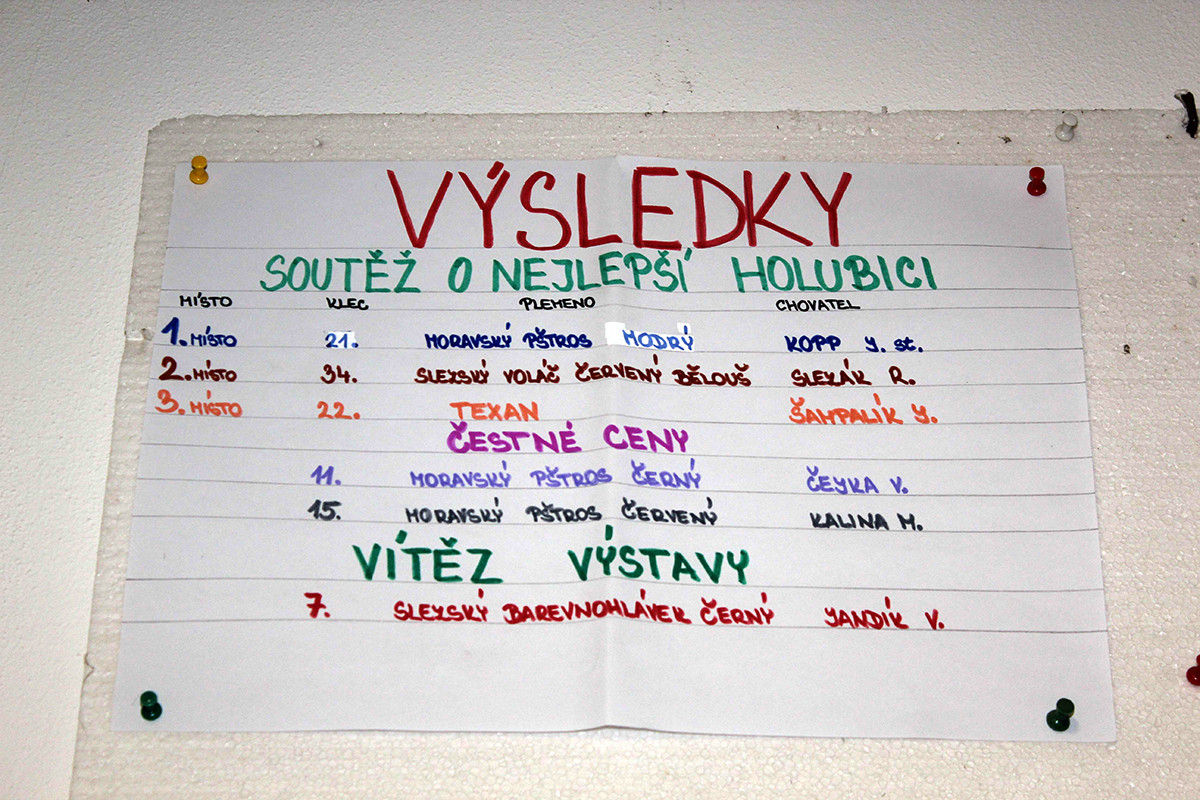 VÝSLEDKY
SOUTĚŽ O NEJLEPŠÍ HOLUBICI
MÍSTO KLEC PLEMENO CHOVATEL
1. MÍSTO 21. MORAVSKÝ PŠTROS MODRÝ KOPP J. st.
2. MÍSTO 34. SLEZSKÝ VOLÁČ ČERVENÝ BĚLOUŠ SLEZÁK R.
3. MÍSTO 22. TEXAN ŠAMPALÍK J.
ČESTNÉ CENY
11. MORAVSKÝ PŠTROS ČERNÝ ČEJKA V.
15. MORAVSKÝ PŠTROS ČERVENÝ KALINA M.
VÍTĚZ VÝSTAVY
7. SLEZSKÝ BAREVNOHLÁVEK ČERNÝ JANDÍK V.